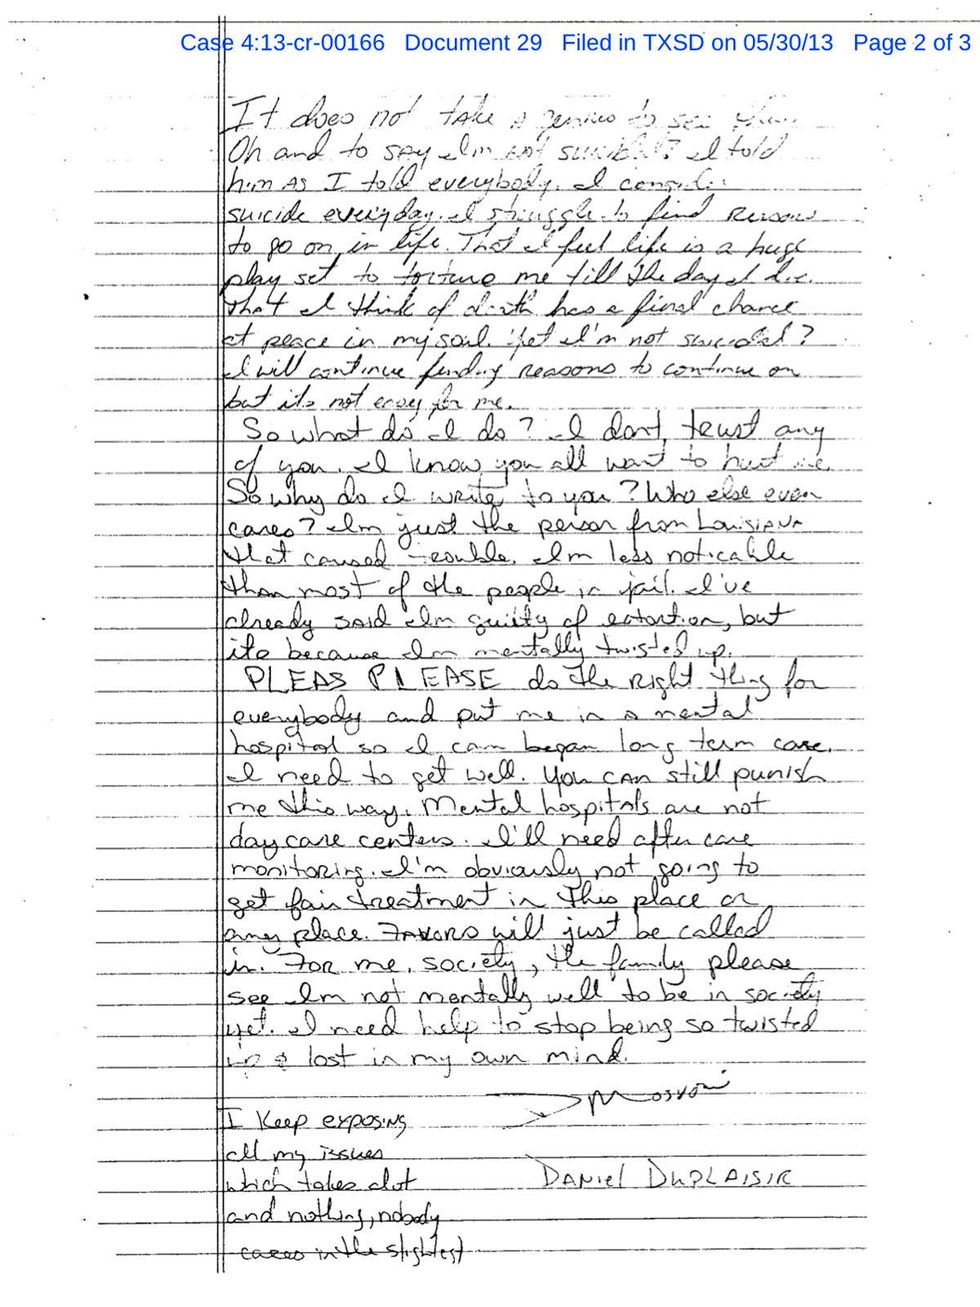 Case 4:13-cr-00166 Document 29 Filed in TXSD on 05/30/13 Page 2 of 3
It does not take a genius to see
Oh and to say Im not suicidal? I told
him as I told everybody. I consider
suicide everyday. I struggle to find reasons
to go on in life. That I feel life is a huge
play set to torture me till the day I die.
That I think of death has a final chance
at peace in my soul. Yet I'm not suicidal?
I will continue finding reasons to continue on
but its not easy for me.
So what do I do? I dont trust any
of you. I know you all want to hurt me.
So why do I write to you? Who else even
cares? Im just the person from Louisiana
that caused trouble. Im less noticable
than most of the people in jail. I've
already said Im guilty of extortion, but
its because Im mentally twisted up.
PLEAS PLEASE do the right thing for
everybody and put me in a mental
hospital so I can began long term care.
I need to get well. You can still punish
me this way. Mental hospitals are not
day care centers. I'll need after care
monitoring. I'm obviously not going to
get fair treatment in this place or
any place. Favors will just be called
in. For me, society, the family please
see Im not mentally well to be in society
yet. I need help to stop being so twisted
up & lost in my own mind.
I Keep exposing
all my issues
which takes alot
Daniel Duplaisir
and nothing, nobody
cares in the slightest